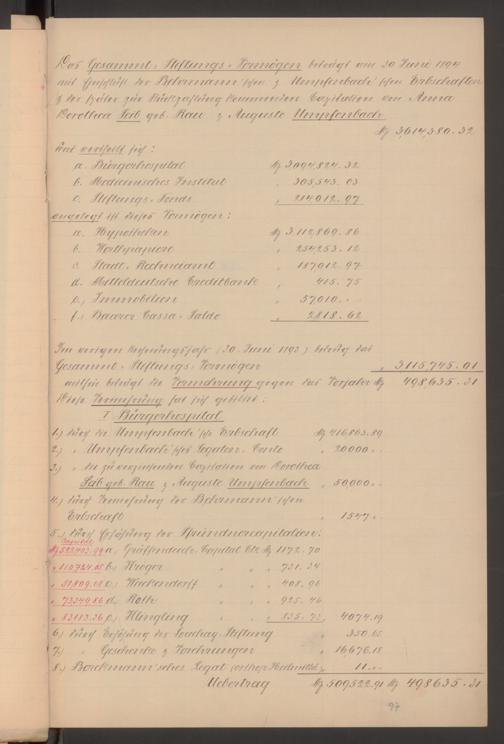 Das Gesammt-Stiftungs-Vermögen beträgt am 30 Juni 1894
mit Einschluß der Behrmann'schen & Umpfenbach'schen Erbschaften
& der später zur Auszahlung kommenden Capitalien von Anna
Dorothea Laß geb. Rau & Auguste Umpfenbach
M 3,614,380.32
und vertheilt sich:
a. Bürgerhospital M 3094,824.32
b. Medicinisches Institut " 305,543.03
c. Stiftungs-Fonds " 214012.97
angelegt ist dieses Vermögen:
a. Hypotheken M 3112,869.86
b. Werthpapiere " 254253.12
c. Stadt-Rechneiamt " 187012.97
d. Mitteldeutsche Creditbank " 415.75
e. Immobilien " 57010.-
f. Baarer Cassa-Saldo " 2818.62
Im vorigen Rechnungsjahr (30. Juni 1893) betrug das
Gesammt-Stiftungs-Vermögen " 3115,745.01
mithin beträgt die Vermehrung gegen das Vorjahr M 498635.31
Diese Vermehrung hat sich gebildet:
I Bürgerhospital
1.) durch die Umpfenbach'sche Erbschaft M 416,863.89
2.) " Umpfenbach'sches Legaten-Conto " 20000.-
3.) " die zu Capitalien von Dorothea
Laß geb. Rau & Auguste Umpfenbach " 50,000.-
4.) durch Vermehrung der Behrmann'schen
Erbschaft " 1547.-
5.) durch Erhöhung der Pfründnercapitalien:
a. Capital Cto M 1172.70
b. Kröger " " " 731.24
" 51809.68 c. Wackendorff " " " 408.96
" 73349.86 d. Roth " " " 925.46
" 83113.36 e. Klingling " " " 835.73 " 4074.19
6.) durch Erhöhung der Stiftung " 350.65
7.) " Geschenke & " 16676.18
8.) Borckmann'sches Legat " 11.-
Uebertrag M 509522.91 M 498635.31
97